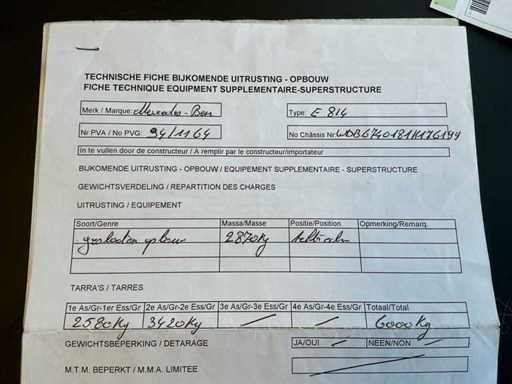 TECHNISCHE FICHE BIJKOMENDE UITRUSTING - OPBOUW
FICHE TECHNIQUE EQUIPEMENT SUPPLEMENTAIRE-SUPERSTRUCTURE
Merk / Marque: Mercedes-Ben Type: E 814
Nr PVA / No PVG: 94/1164 No Châssis Nr
In te vullen door de constructeur / A remplir par le constructeur/importateur
BIJKOMENDE UITRUSTING - OPBOUW / EQUIPEMENT SUPPLEMENTAIRE - SUPERSTRUCTURE
GEWICHTSVERDELING / REPARTITION DES CHARGES
UITRUSTING / EQUIPEMENT
Soort/Genre Massa/Masse Positie/Position Opmerking/Remarq.
gesloten opbouw 2870Kg
TARRA'S / TARRES
1e As/Gr-1er Ess/Gr 2e As/Gr-2e Ess/Gr 3e As/Gr-3e Ess/Gr 4e As/Gr-4e Ess/Gr Totaal/Total
2580Kg 3420Kg / / 6000Kg
GEWICHTSBEPERKING / DETARAGE JA/OUI / NEEN/NON /
M.T.M. BEPERKT / M.M.A. LIMITEE